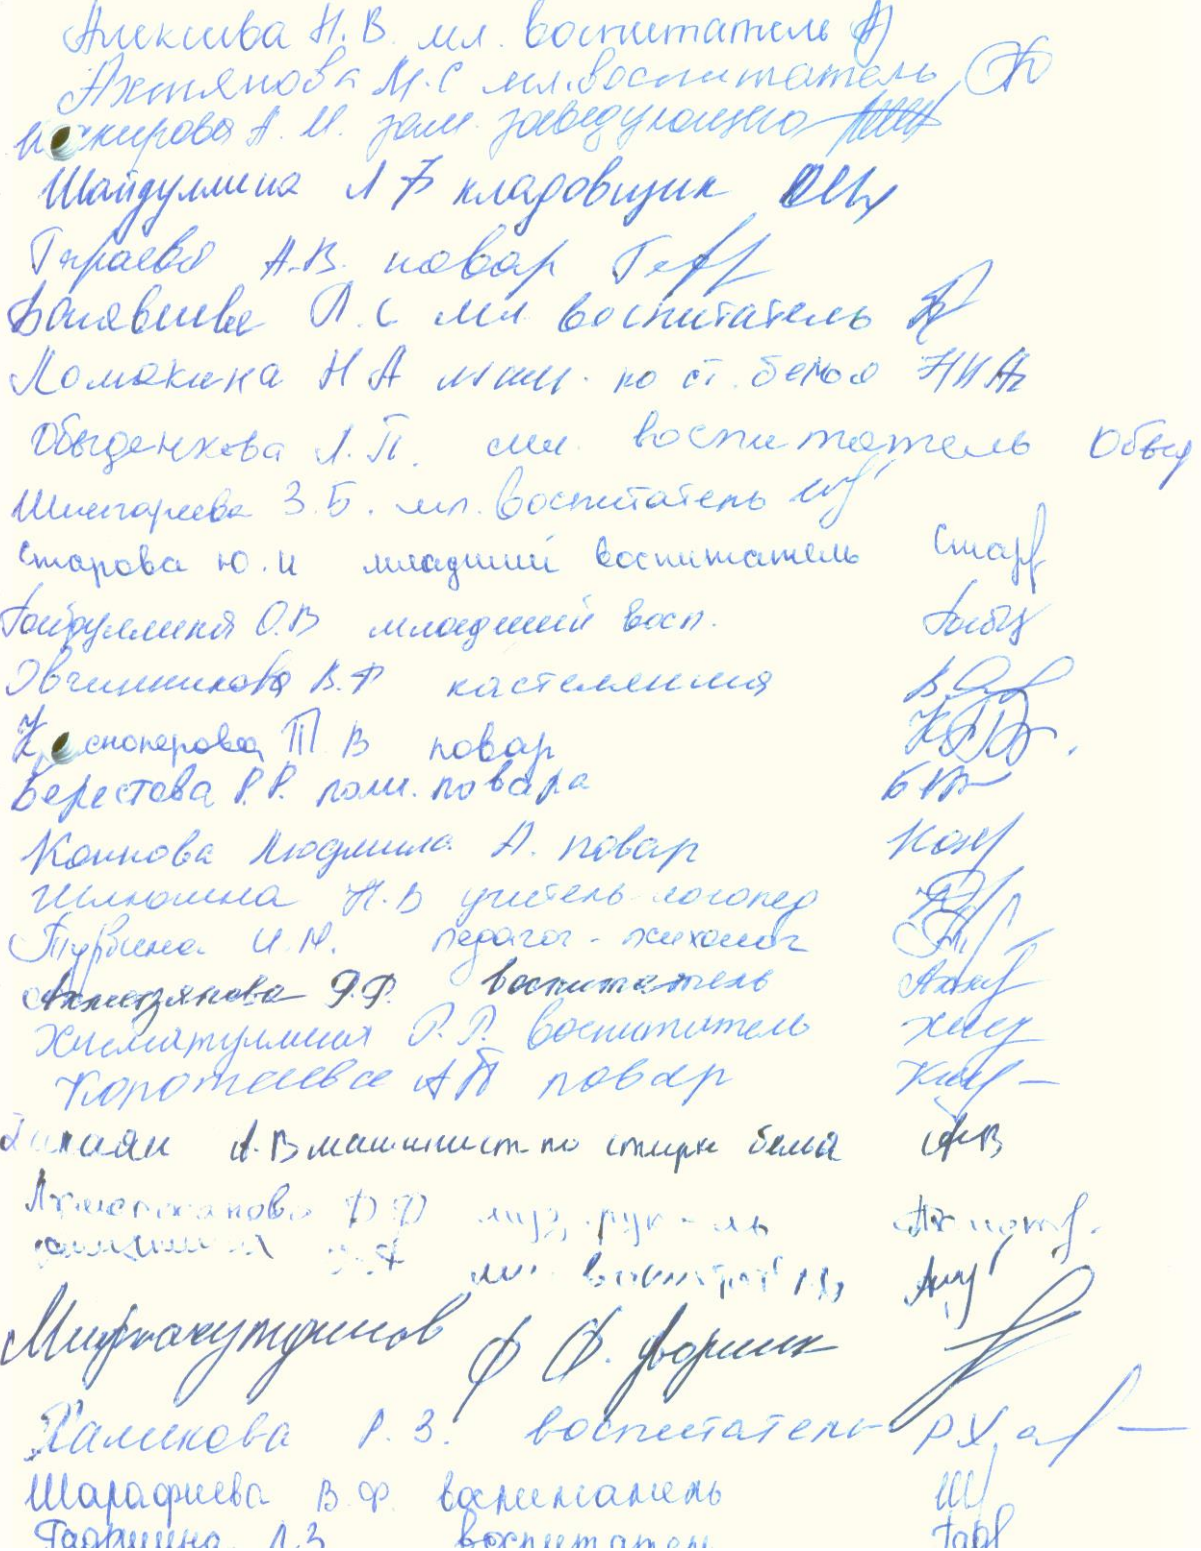 Алексеева Н.В. мл. воспитатель
Ахтянова М.С мл. воспитатель
А.И. зам. заведующего
Шайдуллина Л Ф кладовщик
Гараева А.В. повар
Л.С мл воспитатель
Ломакина Н А маш. по ст. белья
Обыденнова Л.П. мл. воспитатель Обыд
Шигареева З.Б. мл. воспитатель
Старова Ю.И младший воспитатель Стар
О.В младший восп.
Овчинникова В.Ф кастелянша
Т В повар
Берестова Р.Р. пом. повара
Коннова Людмила А. повар Кон
Шлюпкина Н.В учитель-логопед
Турбина И.М. педагог-психолог
Ахметзянова Ф.Ф. воспитатель
Хисматуллина Р.Р. воспитатель
Коротаева А П повар
А.В машинист по стирке белья АВ
Ф Ф муз. рук-ль
мл.
Ф Ф. дворник
Халикова Р.З. воспитатель
Шарафиева В.Ф. воспитатель Ш
Л.З воспитатель